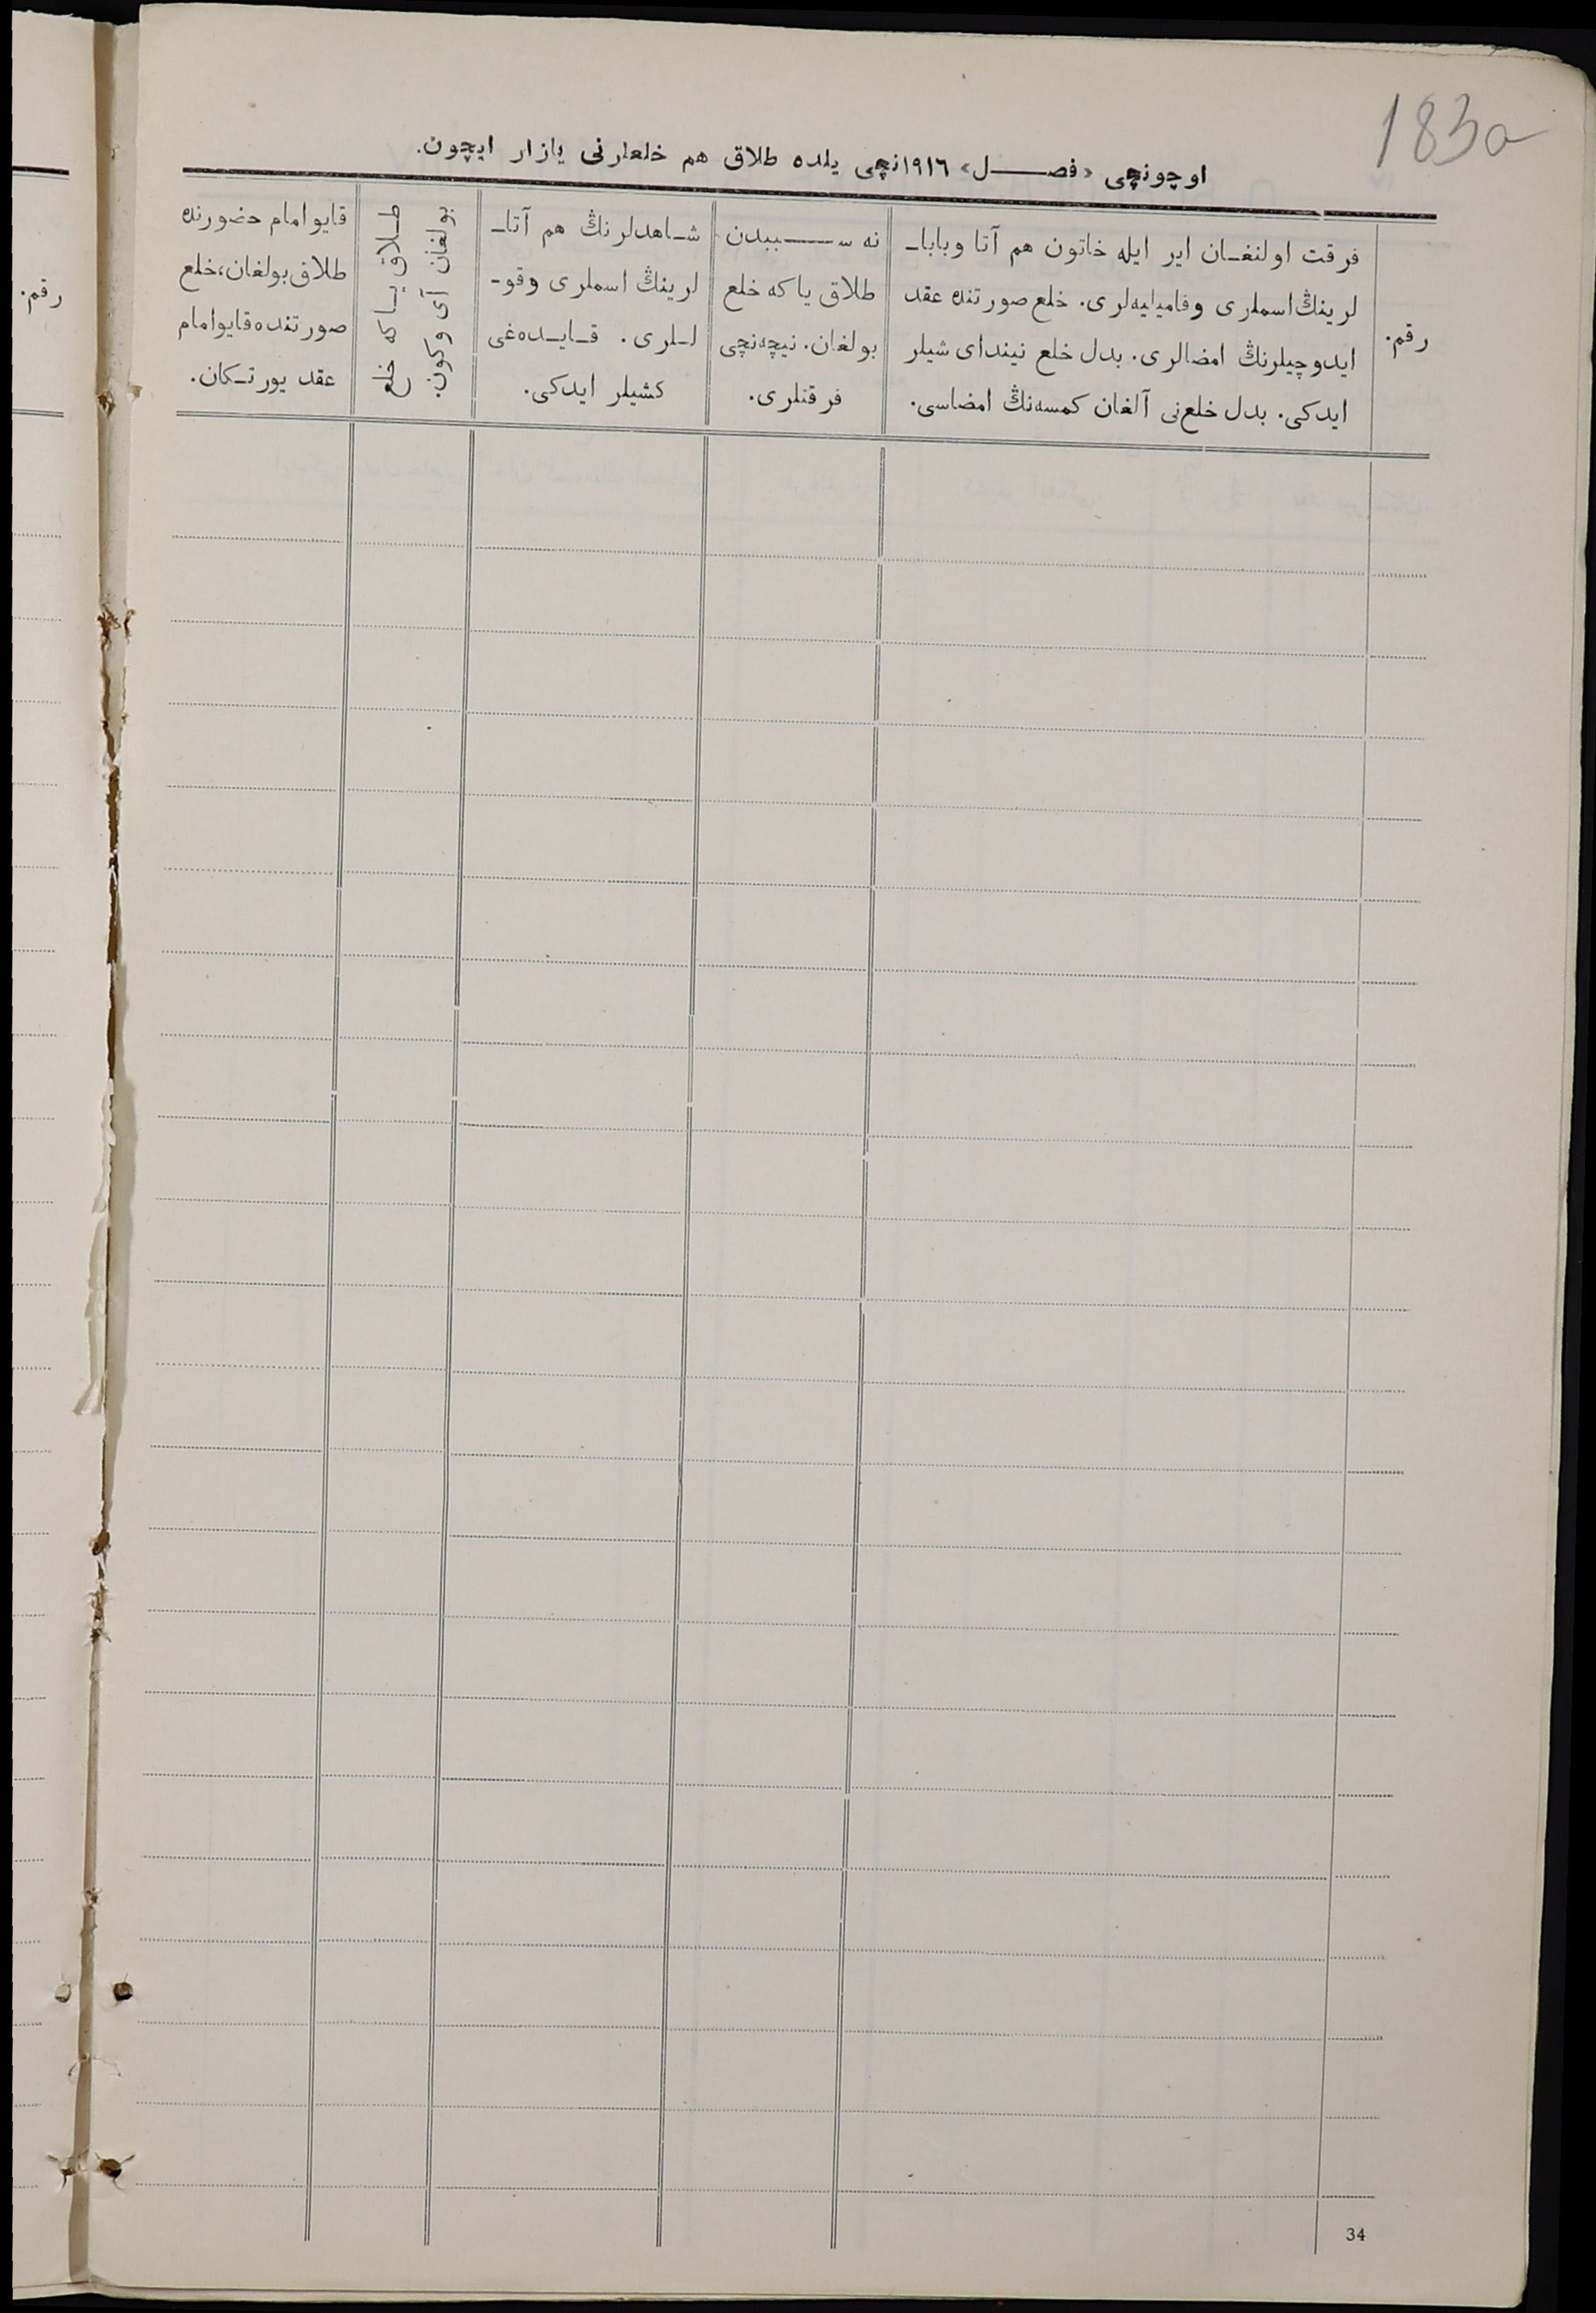 183а
اوچونچی «فصل» ١٩١٦نچی یلده طلاق هم خلعلرنی یازار ایچون.
رقم.
فرقت اولنغان ایر ایله خاتون هم آتا وبابا-
لرینڭ اسملری وفامیلیه‌لری. خلع صورتنده عقد
ایدوچیلرنڭ امضالری. بدل خلع نیندای شیلر
ایدکی. بدل خلع‌نی آلغان کمسه‌نڭ امضاسی.
نه سببدن
طلاق یا که خلع
بولغان. نیچه‌نچی
فرقتلری.
شاهدلرنڭ هم آتا-
لرینڭ اسملری وقو-
للری. قایده‌غی
کشیلر ایدکی.
طلاق یا که خلع
بولغان آی وکون.
قایو امام حضورنده
طلاق بولغان، خلع
صورتنده قایو امام
عقد یورتکان.
رقم.
34